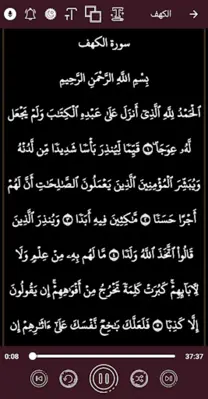 الكهف
سورة الكهف
بِسْمِ اللَّهِ الرَّحْمَٰنِ الرَّحِيمِ
الْحَمْدُ لِلَّهِ الَّذِي أَنزَلَ عَلَىٰ عَبْدِهِ الْكِتَٰبَ وَلَمْ يَجْعَل
لَّهُۥ عِوَجَا ۝١ قَيِّمًا لِّيُنذِرَ بَأْسًا شَدِيدًا مِّن لَّدُنْهُ
وَيُبَشِّرَ الْمُؤْمِنِينَ الَّذِينَ يَعْمَلُونَ الصَّٰلِحَٰتِ أَنَّ لَهُمْ
أَجْرًا حَسَنًا ۝٢ مَّٰكِثِينَ فِيهِ أَبَدًا ۝٣ وَيُنذِرَ الَّذِينَ
قَالُوا۟ اتَّخَذَ اللَّهُ وَلَدًا ۝٤ مَّا لَهُم بِهِۦ مِنْ عِلْمٍ وَلَا
لِءَابَآئِهِمْ كَبُرَتْ كَلِمَةً تَخْرُجُ مِنْ أَفْوَٰهِهِمْ إِن يَقُولُونَ
إِلَّا كَذِبًا ۝٥ فَلَعَلَّكَ بَٰخِعٌ نَّفْسَكَ عَلَىٰٓ ءَاثَٰرِهِمْ إِن
0:08
37:37